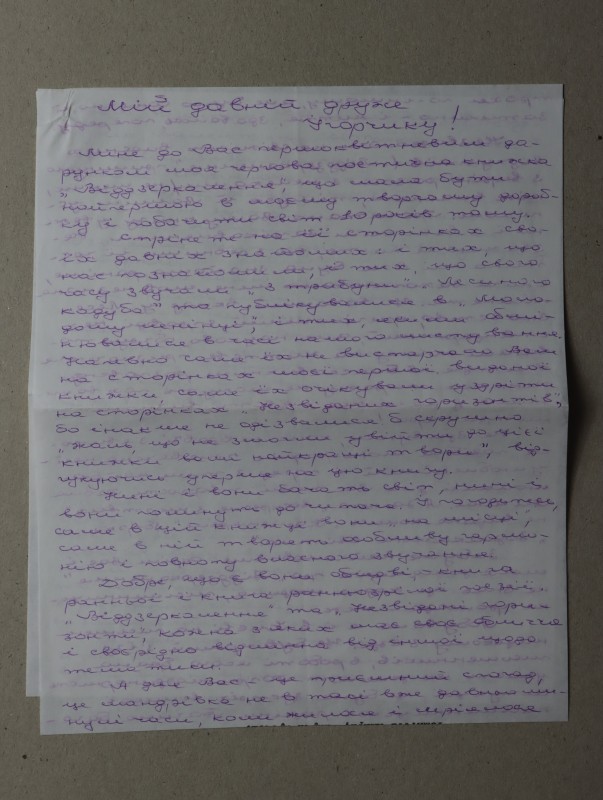 Мій давній друже
Угорчику!
Лине до Вас першоквітневим да-
рунком моя чергова поетична книжка
„Віддзеркалення", що мала бути
найпершою в моєму творчому дороб-
ку і побачити світ 10 років тому.
Стрінете на її сторінках сво-
їх давніх знайомих: і тих, що
нас познайомили, і тих, що свого
часу звучали з трибуни „Лесиного
кадуба" та публікувалися в „Моло-
дому ленінці", і тих, якими обмі-
нювалися в часі нашого листування.
Напевно саме їх не вистарчало Вам
на сторінках моєї першої виданої
книжки, саме їх очікували уздріти
на сторінках „Незвіданих горизонтів",
бо інакше не одізвалися б скрушно
„Жаль, що не змогли увійти до цієї
книжки Ваші найкращі твори", від-
гукуючись уперше на цю книгу.
Нині і вони бачать світ, нині і
вони полинуть до читача. І погодьтесь,
саме в цій книжці вони на місці,
саме в ній творять особливу гармо-
нію і повноту власного звучання.
Добре, що є вони обидві, – книга
ранньої і книга ранньозрілої поезії.
„Віддзеркалення" та „Незвідані гори-
зонти", кожна з яких має своє обличчя
і своєрідно відмінна від іншої щодо
тематики.
А для Вас і це приємний спогад,
це мандрівка не в такі вже давноми-
нулі часи, коли жилося і мріялося